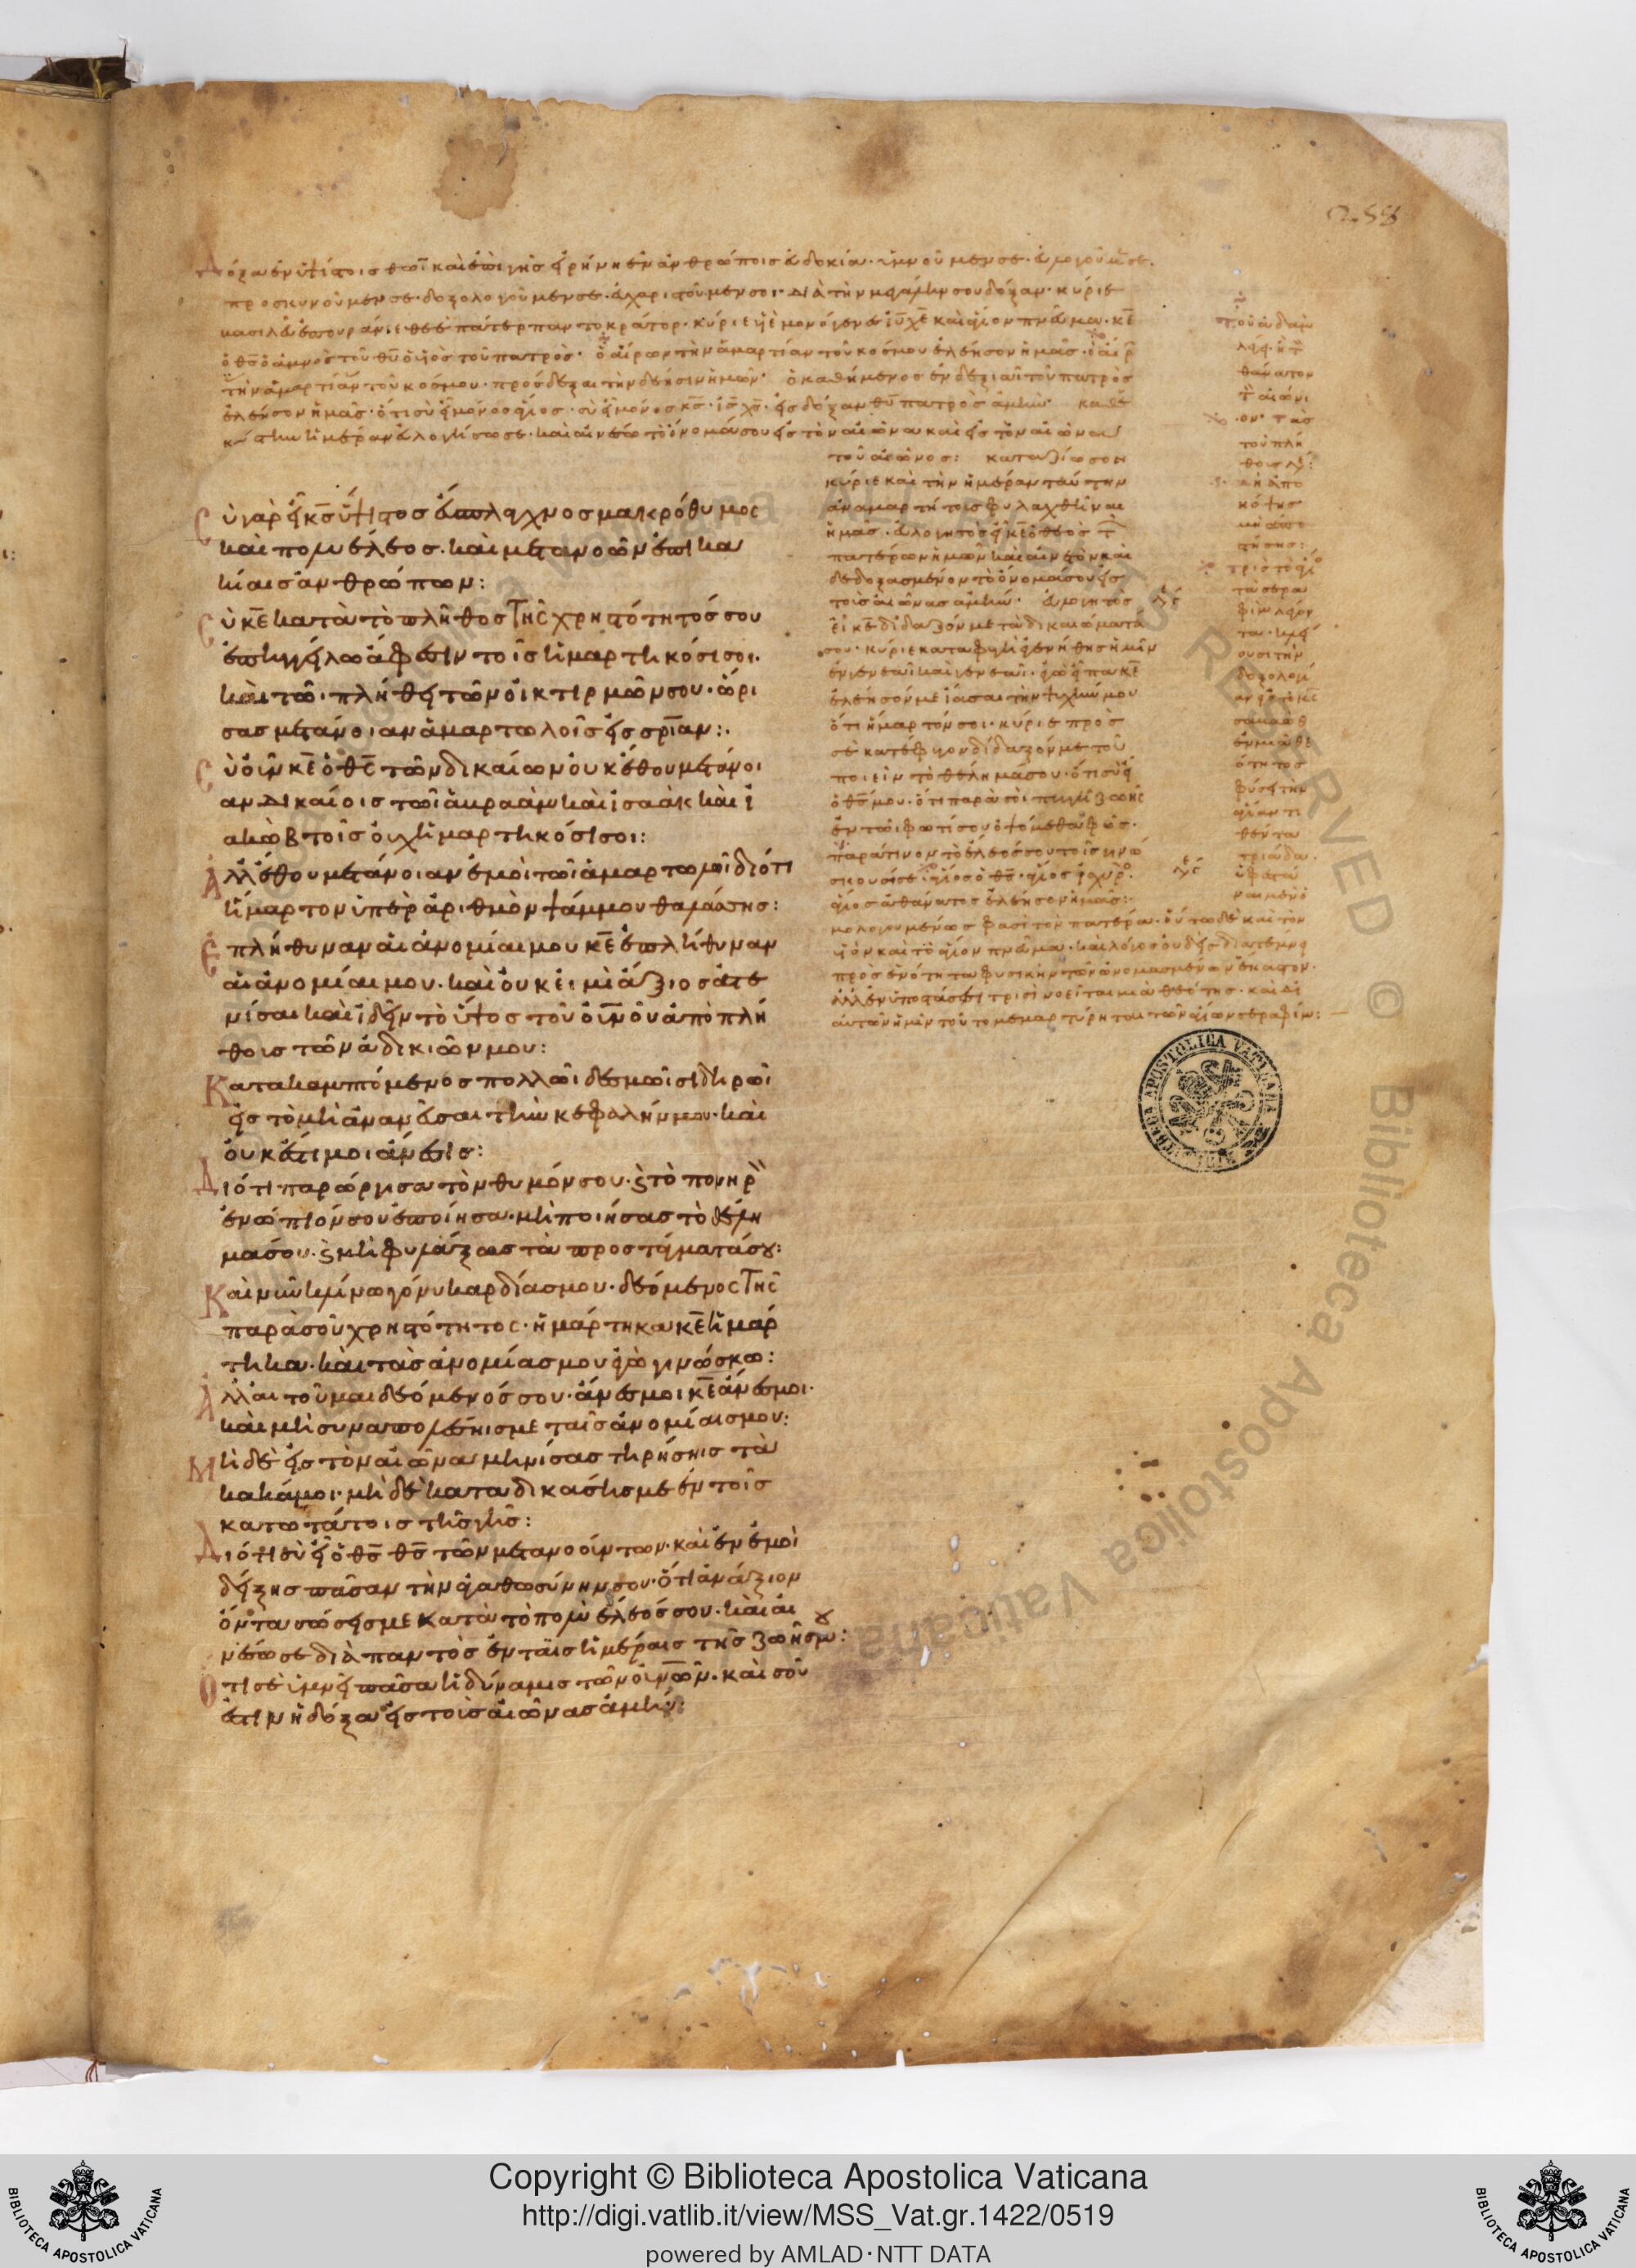 Δόξα ἐν ὑψίστοις θεῶι καὶ ἐπὶ γῆς εἰρήνη ἐν ἀνθρώποις εὐδοκία· ὑμνοῦμεν σε· εὐλογοῦμεν σε·
προσκυνοῦμεν σε· δοξολογοῦμεν σε· εὐχαριστοῦμεν σοι· διὰ τὴν μεγάλην σου δόξαν· κύριε
βασιλεῦ ἐπουράνιε θεὲ πάτερ παντοκράτορ· κύριε υἱὲ μονογενὲς ιυ χε καὶ ἅγιον πνεῦμα· κε
ὁ θς ὁ ἀμνὸς τοῦ θυ ὁ υἱὸς τοῦ πατρὸς· ὁ αἴρων τὴν ἁμαρτίαν τοῦ κόσμου ἐλέησον ἡμᾶς· ὁ αἴρ
τὴν ἁμαρτίαν τοῦ κόσμου· πρόσδεξαι τὴν δέησιν ἡμῶν· ὁ καθήμενος ἐν δεξιαῖ τοῦ πατρὸς
ἐλέησον ἡμᾶς· ὅτι σὺ εἶ μόνος ἅγιος· σὺ εἶ μόνος κς· ις χς· εἰς δόξαν θυ πατρὸς ἀμήν· καθ
ἑκάστην ἡμέραν εὐλογήσω σε· καὶ αἰνέσω τὸ ὄνομά σου εἰς τὸν αἰῶνα καὶ εἰς τὸν αἰῶνα
τοῦ αἰῶνος: καταξίωσον
κύριε καὶ τὴν ἡμέραν ταύτην
ἀναμαρτήτοις φυλαχθῆναι
ἡμᾶς· εὐλογητὸς εἶ κε ὁ θεὸς τ
πατέρων ἡμῶν καὶ αἰνετὸν καὶ
δεδοξασμένον τὸ ὄνομά σου εἰς
τοὺς αἰῶνας ἀμήν· εὐλογητὸς
εἶ κε δίδαξόν με τὰ δικαιώματά
σου· κύριε καταφυγὴ ἐγενήθης ἡμῖν
ἐν γενεᾶι καὶ γενεᾶι· ἐγὼ εἶπα κε
ἐλέησόν με ἴασαι τὴν ψυχήν μου
ὅτι ἥμαρτόν σοι· κύριε πρὸς
σὲ κατέφυγον δίδαξόν με τοῦ
ποιεῖν τὸ θέλημά σου· ὅτι σὺ εἶ
ὁ θς μου· ὅτι παρὰ σοὶ πηγὴ ζωῆς
ἐν τῶι φωτί σου ὀψόμεθα φῶς·
παράτινον τὸ ἔλεός σου τοῖς γινώ
σκουσί σε· ἅγιος ὁ θς· ἅγιος ἰσχυρ
ἅγιος ἀθάνατος ἐλέησον ἡμᾶς:
μολογουμένως φασὶ τὸν πατέρα· οὕτω δὲ καὶ τὸν
υἱὸν καὶ τὸ ἅγιον πνεῦμα· καὶ λόγος οὐδεὶς διατέμνει
πρὸς ἑνότητα φυσικὴν τῶν ὠνομασμένων ἕκαστον·
ἀλλ' ἐν ὑποστάσεσι τρισὶ νοεῖται μία θεότης· καὶ δι
αὐτῶν ἡμῖν τοῦτο μεμαρτύρηται τῶν ἁγίων σεραφίμ:
θάνατον
τοῦ πλή
θους
κόψης
τὰ σερα
ουσι τὴν
δοξολογί
φύσει τὴν
θέντα
τριάδα·
Σὺ γὰρ εἶ κς ὕψιστος εὔσπλαγχνος μακρόθυμος
καὶ πολυέλεος· καὶ μετανοῶν ἐπὶ κα
κίαις ἀνθρώπων:
Σὺ κε κατὰ τὸ πλῆθος τῆς χρηστότητός σου
ἐπηγγείλω ἄφεσιν τοῖς ἡμαρτηκόσι σοι·
καὶ τῶ πλήθει τῶν οἰκτιρμῶν σου· ὥρι
σας μετάνοιαν ἁμαρτωλοῖς εἰς σριαν:
Σὺ οὖν κε ὁ θς τῶν δικαίων οὐκ ἔθου μετάνοι
αν δικαίοις τῶι ἀβραὰμ καὶ ἰσαὰκ καὶ ἰ
ακὼβ τοῖς οὐχ ἡμαρτηκόσι σοι:
Ἀλλ' ἔθου μετάνοιαν ἐμοὶ τῶι ἁμαρτωλῶι διότι
ἥμαρτον ὑπὲρ ἀριθμὸν ψάμμου θαλάσσης:
Ἐπλήθυναν αἱ ἀνομίαι μου κε ἐπλήθυναν
αἱ ἀνομίαι μου· καὶ οὐκ εἰμὶ ἄξιος ἀτε
νίσαι καὶ ἰδεῖν τὸ ὕψος τοῦ οὐνοῦ ἀπὸ πλή
θους τῶν ἀδικιῶν μου:
Κατακαμπτόμενος πολλῶι δεσμῶι σιδηρῶι
εἰς τὸ μὴ ἀνανεῦσαι τὴν κεφαλήν μου· καὶ
οὐκ ἔστι μοι ἄνεσις:
Διότι παρώργισα τὸν θυμόν σου· ϗ τὸ πονηρ
ἐνώπιόν σου ἐποίησα· μὴ ποιήσας τὸ θέλη
μά σου· ϗ μὴ φυλάξας τὰ προστάγματά σου:
Καὶ νῦν κλίνω γόνυ καρδίας μου· δεόμενος τῆς
παρὰ σοῦ χρηστότητος· ἡμάρτηκα κε ἡμάρ
τηκα· καὶ τὰς ἀνομίας μου ἐγὼ γινώσκω:
Ἀλλ' αἰτοῦμαι δεόμενός σου· ἄνες μοι κε ἄνες μοι·
καὶ μὴ συναπολέσηις με ταῖς ἀνομίαις μου:
Μὴ δὲ εἰς τὸν αἰῶνα μηνίσας τηρήσηις τὰ
κακά μοι· μὴ δὲ καταδικάσηις με ἐν τοῖς
κατωτάτοις τῆς γῆς:
Διότι σὺ εἶ ὁ θς θς τῶν μετανοούντων· καὶ ἐν ἐμοὶ
δείξης πᾶσαν τὴν ἀγαθωσύνην σου· ὅτι ἀνάξιον
ὄντα σώσεις με κατὰ τὸ πολὺ ἔλεός σου· καὶ αἰ
νέσω σε διὰ παντὸς ἐν ταῖς ἡμέραις τῆς ζωῆς μου:
Ὅτι σὲ ὑμνεῖ πᾶσα ἡ δύναμις τῶν οὐνῶν· καὶ σοῦ
ἐστιν ἡ δόξα εἰς τοὺς αἰῶνας ἀμήν:
Copyright © Biblioteca Apostolica Vaticana
http://digi.vatlib.it/view/MSS_Vat.gr.1422/0519
powered by AMLAD·NTT DATA
BIBLIOTECA APOSTOLICA VATICANA
BIBLIOTECA APOSTOLICA VATICANA